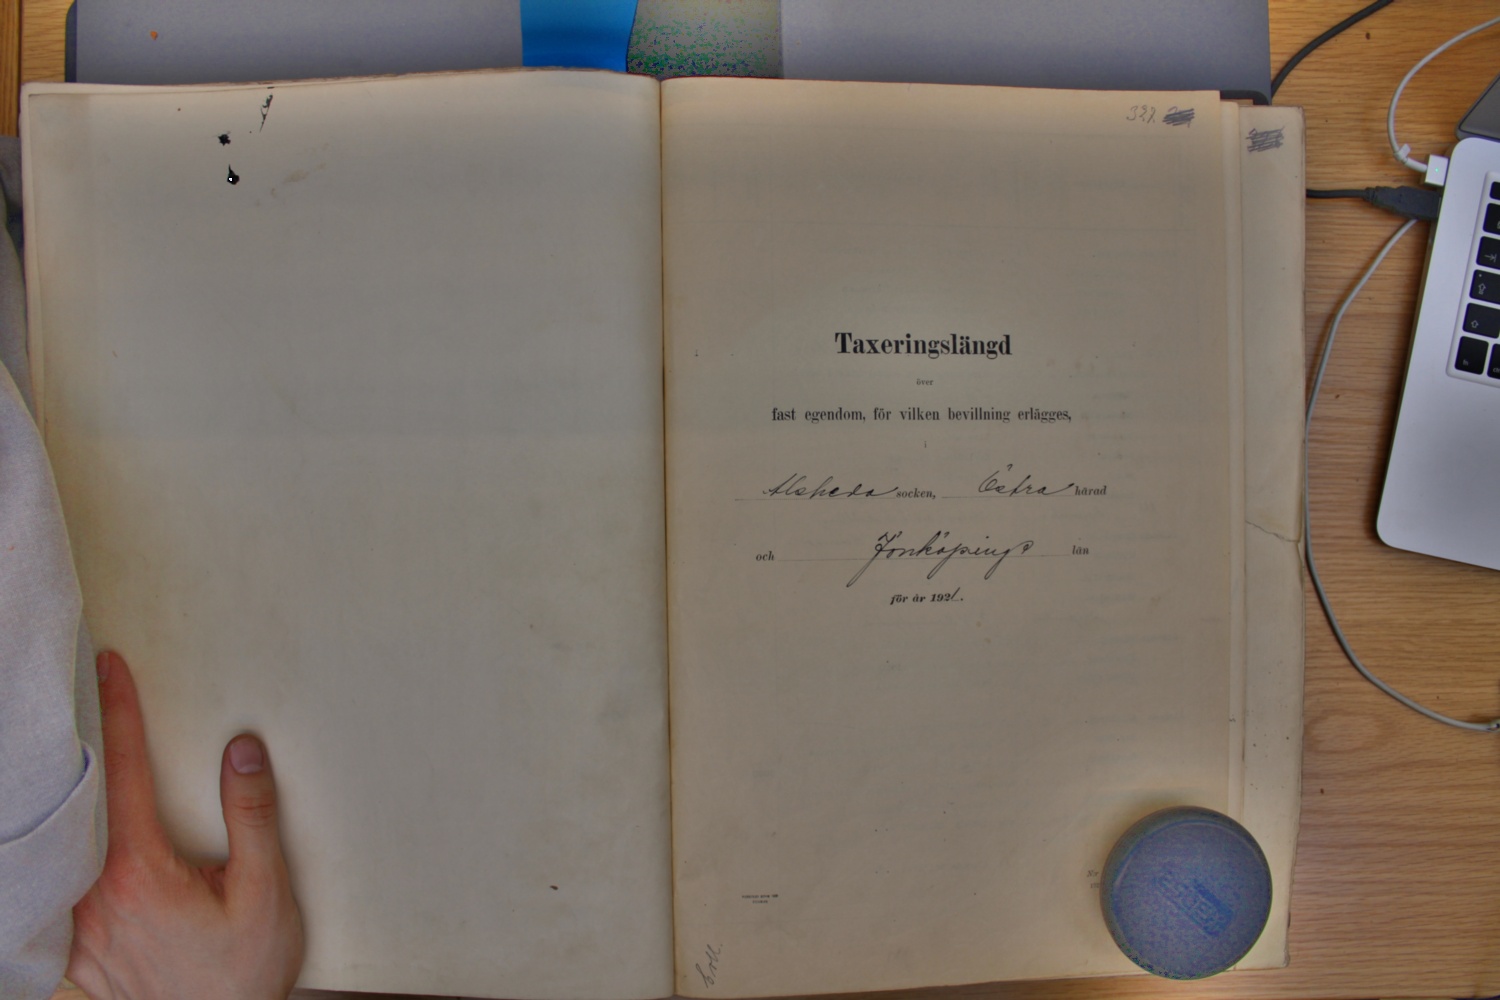 327.
Taxeringslängd
över
fast egendom, för vilken bevillning erlägges,
i
Alsheda socken, Östra härad
och Jönköpings län
för år 1921.
Coll.